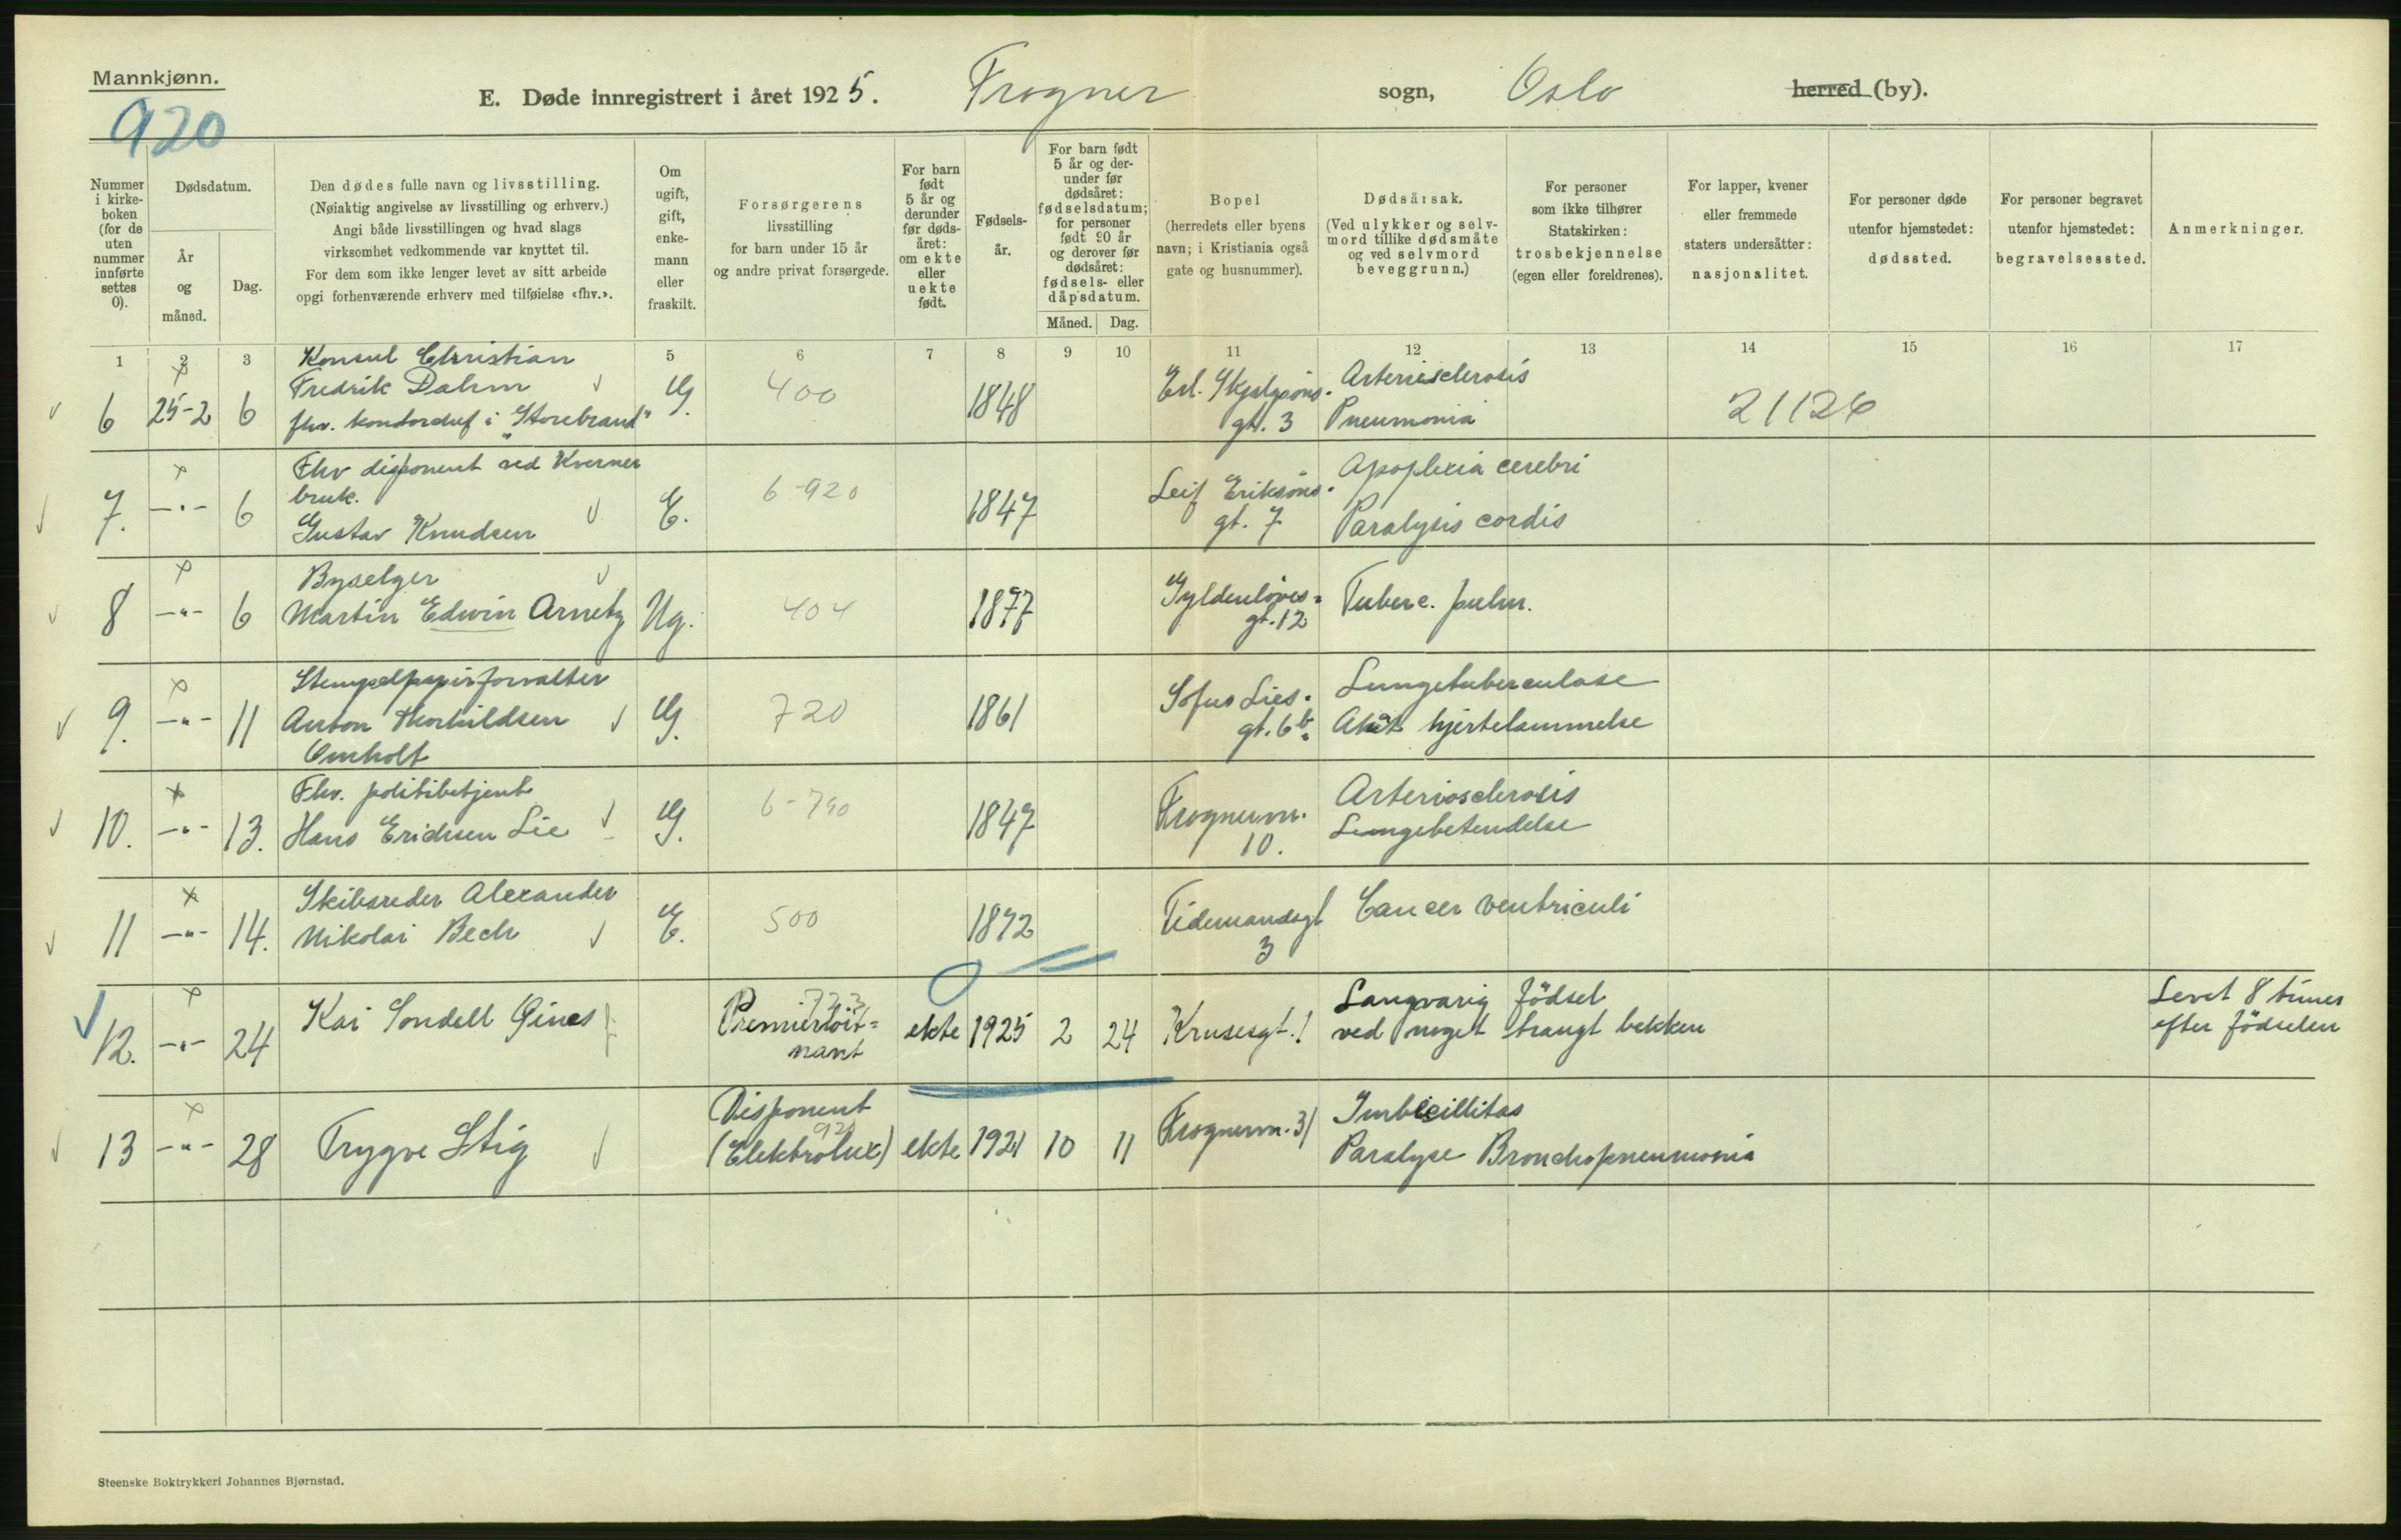 Mannkjønn.
920
E. Døde innregistrert i året 1925. Frogner sogn, Oslo herred (by).
Nummer i kirke-boken (for de uten nummer innførte settes 0).
Dødsdatum.
År og måned.
Dag.
Den dødes fulle navn og livsstilling.
(Nøiaktig angivelse av livsstilling og erhverv.)
Angi både livsstillingen og hvad slags
virksomhet vedkommende var knyttet til.
For dem som ikke lenger levet av sitt arbeide
opgi forhenværende erhverv med tilføielse «fhv.».
Om ugift, gift, enke-mann eller fraskilt.
Forsørgerens
livsstilling
for barn under 15 år
og andre privat forsørgede.
For barn født 5 år og derunder før døds-året: om ekte eller uekte født.
Fødsels-år.
For barn født 5 år og der-under før dødsåret: fødselsdatum; for personer født 90 år og derover før dødsåret: fødsels- eller dåpsdatum.
Måned. Dag.
Bopel
(herredets eller byens
navn; i Kristiania også
gate og husnummer).
Dødsårsak.
(Ved ulykker og selv-
mord tillike dødsmåte
og ved selvmord
beveggrunn.)
For personer
som ikke tilhører
Statskirken:
trosbekjennelse
(egen eller foreldrenes).
For lapper, kvener
eller fremmede
staters undersåtter:
nasjonalitet.
For personer døde
utenfor hjemstedet:
dødssted.
For personer begravet
utenfor hjemstedet:
begravelsessted.
Anmerkninger.
1 2 3 5 6 7 8 9 10 11 12 13 14 15 16 17
Konsul Christian
Fredrik Dahm
fhv. kontorchef i "Storebrand"
6 25-2 6 G. 400 1848
Erl. Skjalgsøns-
gt. 3
Arteriesclerosis
Pneumonia
21126
Fhv disponent ved Kverner
bruk.
Gustav Knudsen
7. -"- 6 E. 6-920 1847
Leif Eriksøns-
gt. 7
Apoplexia cerebri
Paralysis cordis
Byselger
Martin Edwin Arnetz
8 -"- 6 Ug. 404 1877
Gyldenløves-
gt. 12
Tuberc. pulm.
Stempelpapirforvalter
Anton Thorkildsen
Omholt
9. -"- 11 G. 720 1861
Sofus Lies-
gt. 6b.
Lungetuberculose
Akut hjertelammelse
Fhv. politibetjent
Hans Erichsen Lie
10. -"- 13. G. 6-790 1847
Frognervn.
10.
Arteriosclerosis
Lungebetendelse
Skibsreder Alexander
Nikolai Bech
11 -"- 14. E. 500 1872
Tidemandsgt
3
Cancer ventriculi
12. -"- 24 Kai Sondell
723
Premierløit=
nant
ekte 1925 2 24 Krusesgt. 1
Langvarig födsel
ved noget trangt bekken
Levet 8 timer
efter födselen
13 -"- 28 Trygve Stig
Disponent
920
(Elektrolux) ekte 1921 10 11 Frognervn. 31
Imbicillitas
Paralyse Bronchopneumonia
Steenske Boktrykkeri Johannes Bjørnstad.